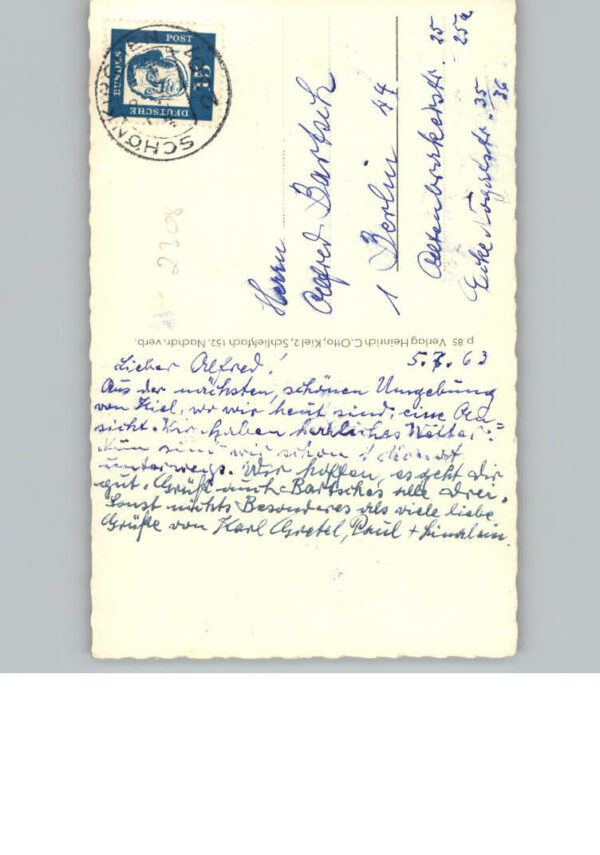 Lieber Alfred! 5.7.63
Aus der nächsten, schönen Umgebung
von Kiel, wo wir heut sind, eine An=
sicht. Wir haben herrliches Wetter.
Nun sind wir schon 1 Monat
unterwegs. Wir hoffen, es geht Dir
gut. Grüße auch Bartsches alle drei.
Sonst nichts Besonderes als viele liebe
Grüße von Karl Gretel, Paul +
p 85 Verlag Heinrich C. Otto, Kiel 2, Schließfach 152. Nachdr. verb.
Herrn
Alfred Bartsch
1 Berlin 44
Altenbrakerstr. 25
25a
Ecke Nogatstr. 35/36
DEUTSCHE
BUNDES
POST
15
SCHÖNKIRCHEN
2308